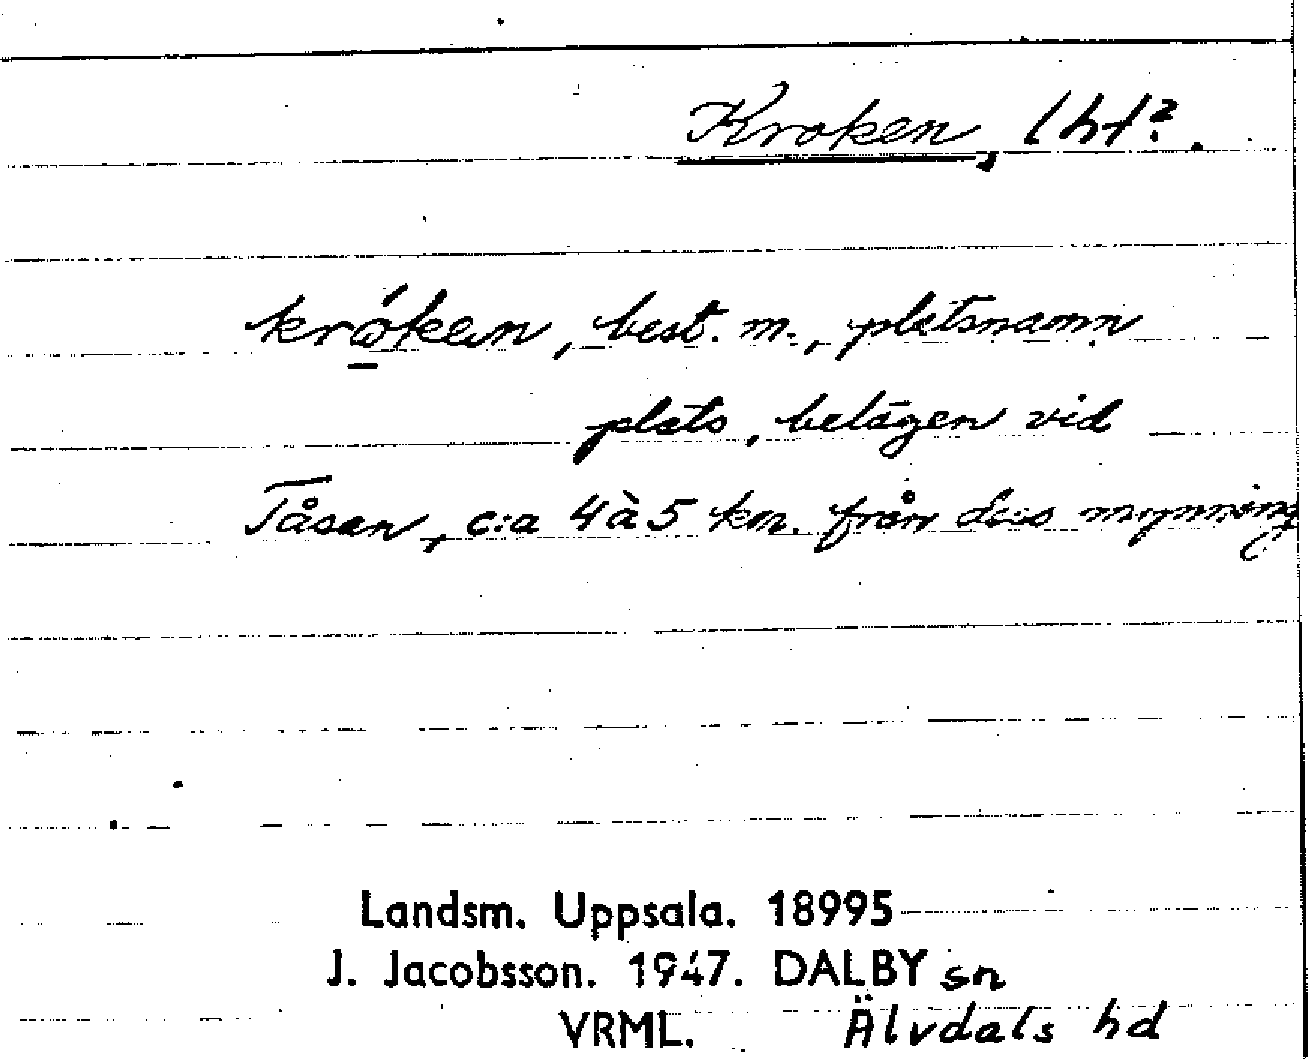 Kroken, lht?.
krǿken, best. m., platsnamn
plats, belägen vid
Tåsan, c:a 4 à 5 km. från dess mynning
Landsm. Uppsala. 18995
J. Jacobsson. 1947. DALBY sn
VRML. Älvdals hd